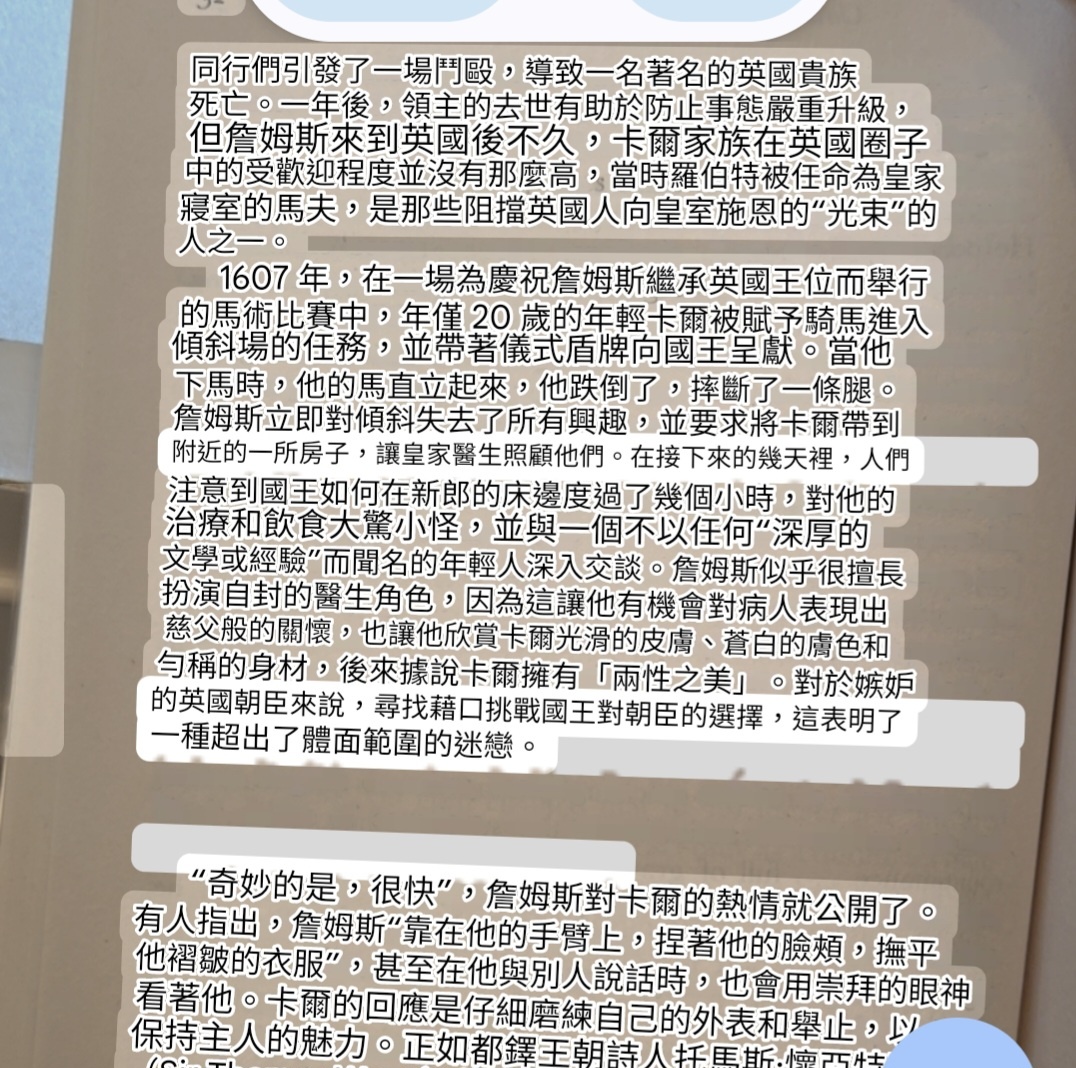 同行們引發了一場鬥毆，導致一名著名的英國貴族
死亡。一年後，領主的去世有助於防止事態嚴重升級，
但詹姆斯來到英國後不久，卡爾家族在英國圈子
中的受歡迎程度並沒有那麼高，當時羅伯特被任命為皇家
寢室的馬夫，是那些阻擋英國人向皇室施恩的“光束”的
人之一。
1607 年，在一場為慶祝詹姆斯繼承英國王位而舉行
的馬術比賽中，年僅 20 歲的年輕卡爾被賦予騎馬進入
傾斜場的任務，並帶著儀式盾牌向國王呈獻。當他
下馬時，他的馬直立起來，他跌倒了，摔斷了一條腿。
詹姆斯立即對傾斜失去了所有興趣，並要求將卡爾帶到
附近的一所房子，讓皇家醫生照顧他們。在接下來的幾天裡，人們
注意到國王如何在新郎的床邊度過了幾個小時，對他的
治療和飲食大驚小怪，並與一個不以任何“深厚的
文學或經驗”而聞名的年輕人深入交談。詹姆斯似乎很擅長
扮演自封的醫生角色，因為這讓他有機會對病人表現出
慈父般的關懷，也讓他欣賞卡爾光滑的皮膚、蒼白的膚色和
勻稱的身材，後來據說卡爾擁有「兩性之美」。對於嫉妒
的英國朝臣來說，尋找藉口挑戰國王對朝臣的選擇，這表明了
一種超出了體面範圍的迷戀。
“奇妙的是，很快”，詹姆斯對卡爾的熱情就公開了。
有人指出，詹姆斯“靠在他的手臂上，捏著他的臉頰，撫平
他褶皺的衣服”，甚至在他與別人說話時，也會用崇拜的眼神
看著他。卡爾的回應是仔細磨練自己的外表和舉止，以
保持主人的魅力。正如都鐸王朝詩人托馬斯·懷亞特